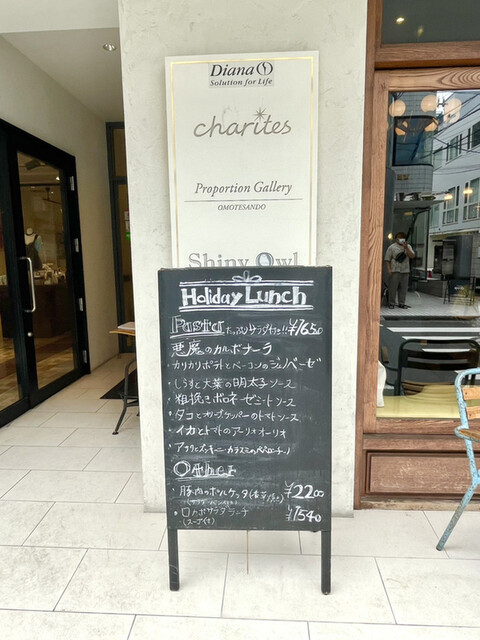 Diana
Solution for Life
charites
Proportion Gallery
OMOTESANDO
Shiny Owl
Holiday Lunch
Pasta たっぷりサラダ付き!! ¥1650
悪魔のカルボナーラ
・カリカリポテトとベーコンのジェノベーゼ
・しらすと大葉の明太子ソース
・粗挽きボロネーゼミートソース
・タコとオリーブケッパーのトマトソース
・イカとトマトのアーリオオーリオ
Other
・豚肉のポルケッタ ¥2200
・ロカボサラダランチ ¥1540
(スープ付)